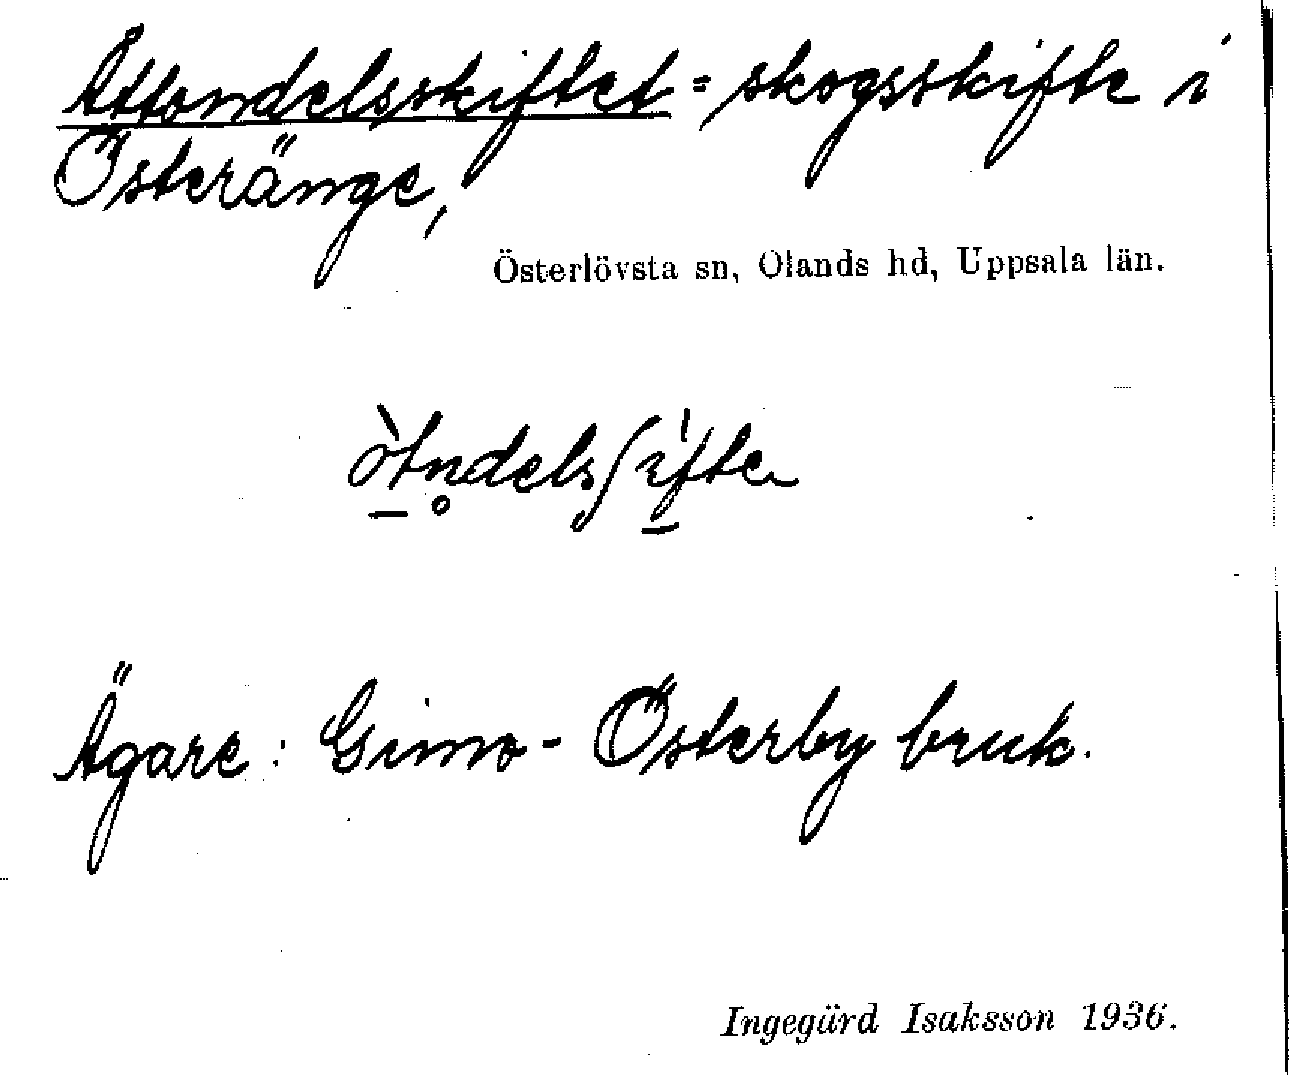 Åttondelsskiftet = skogsskifte i
Österänge,
Österlövsta sn, Olands hd, Uppsala län.
òt̲n̥dels ʃì̲fte
Ägare: Gimo-Österby bruk.
Ingegärd Isaksson 1936.